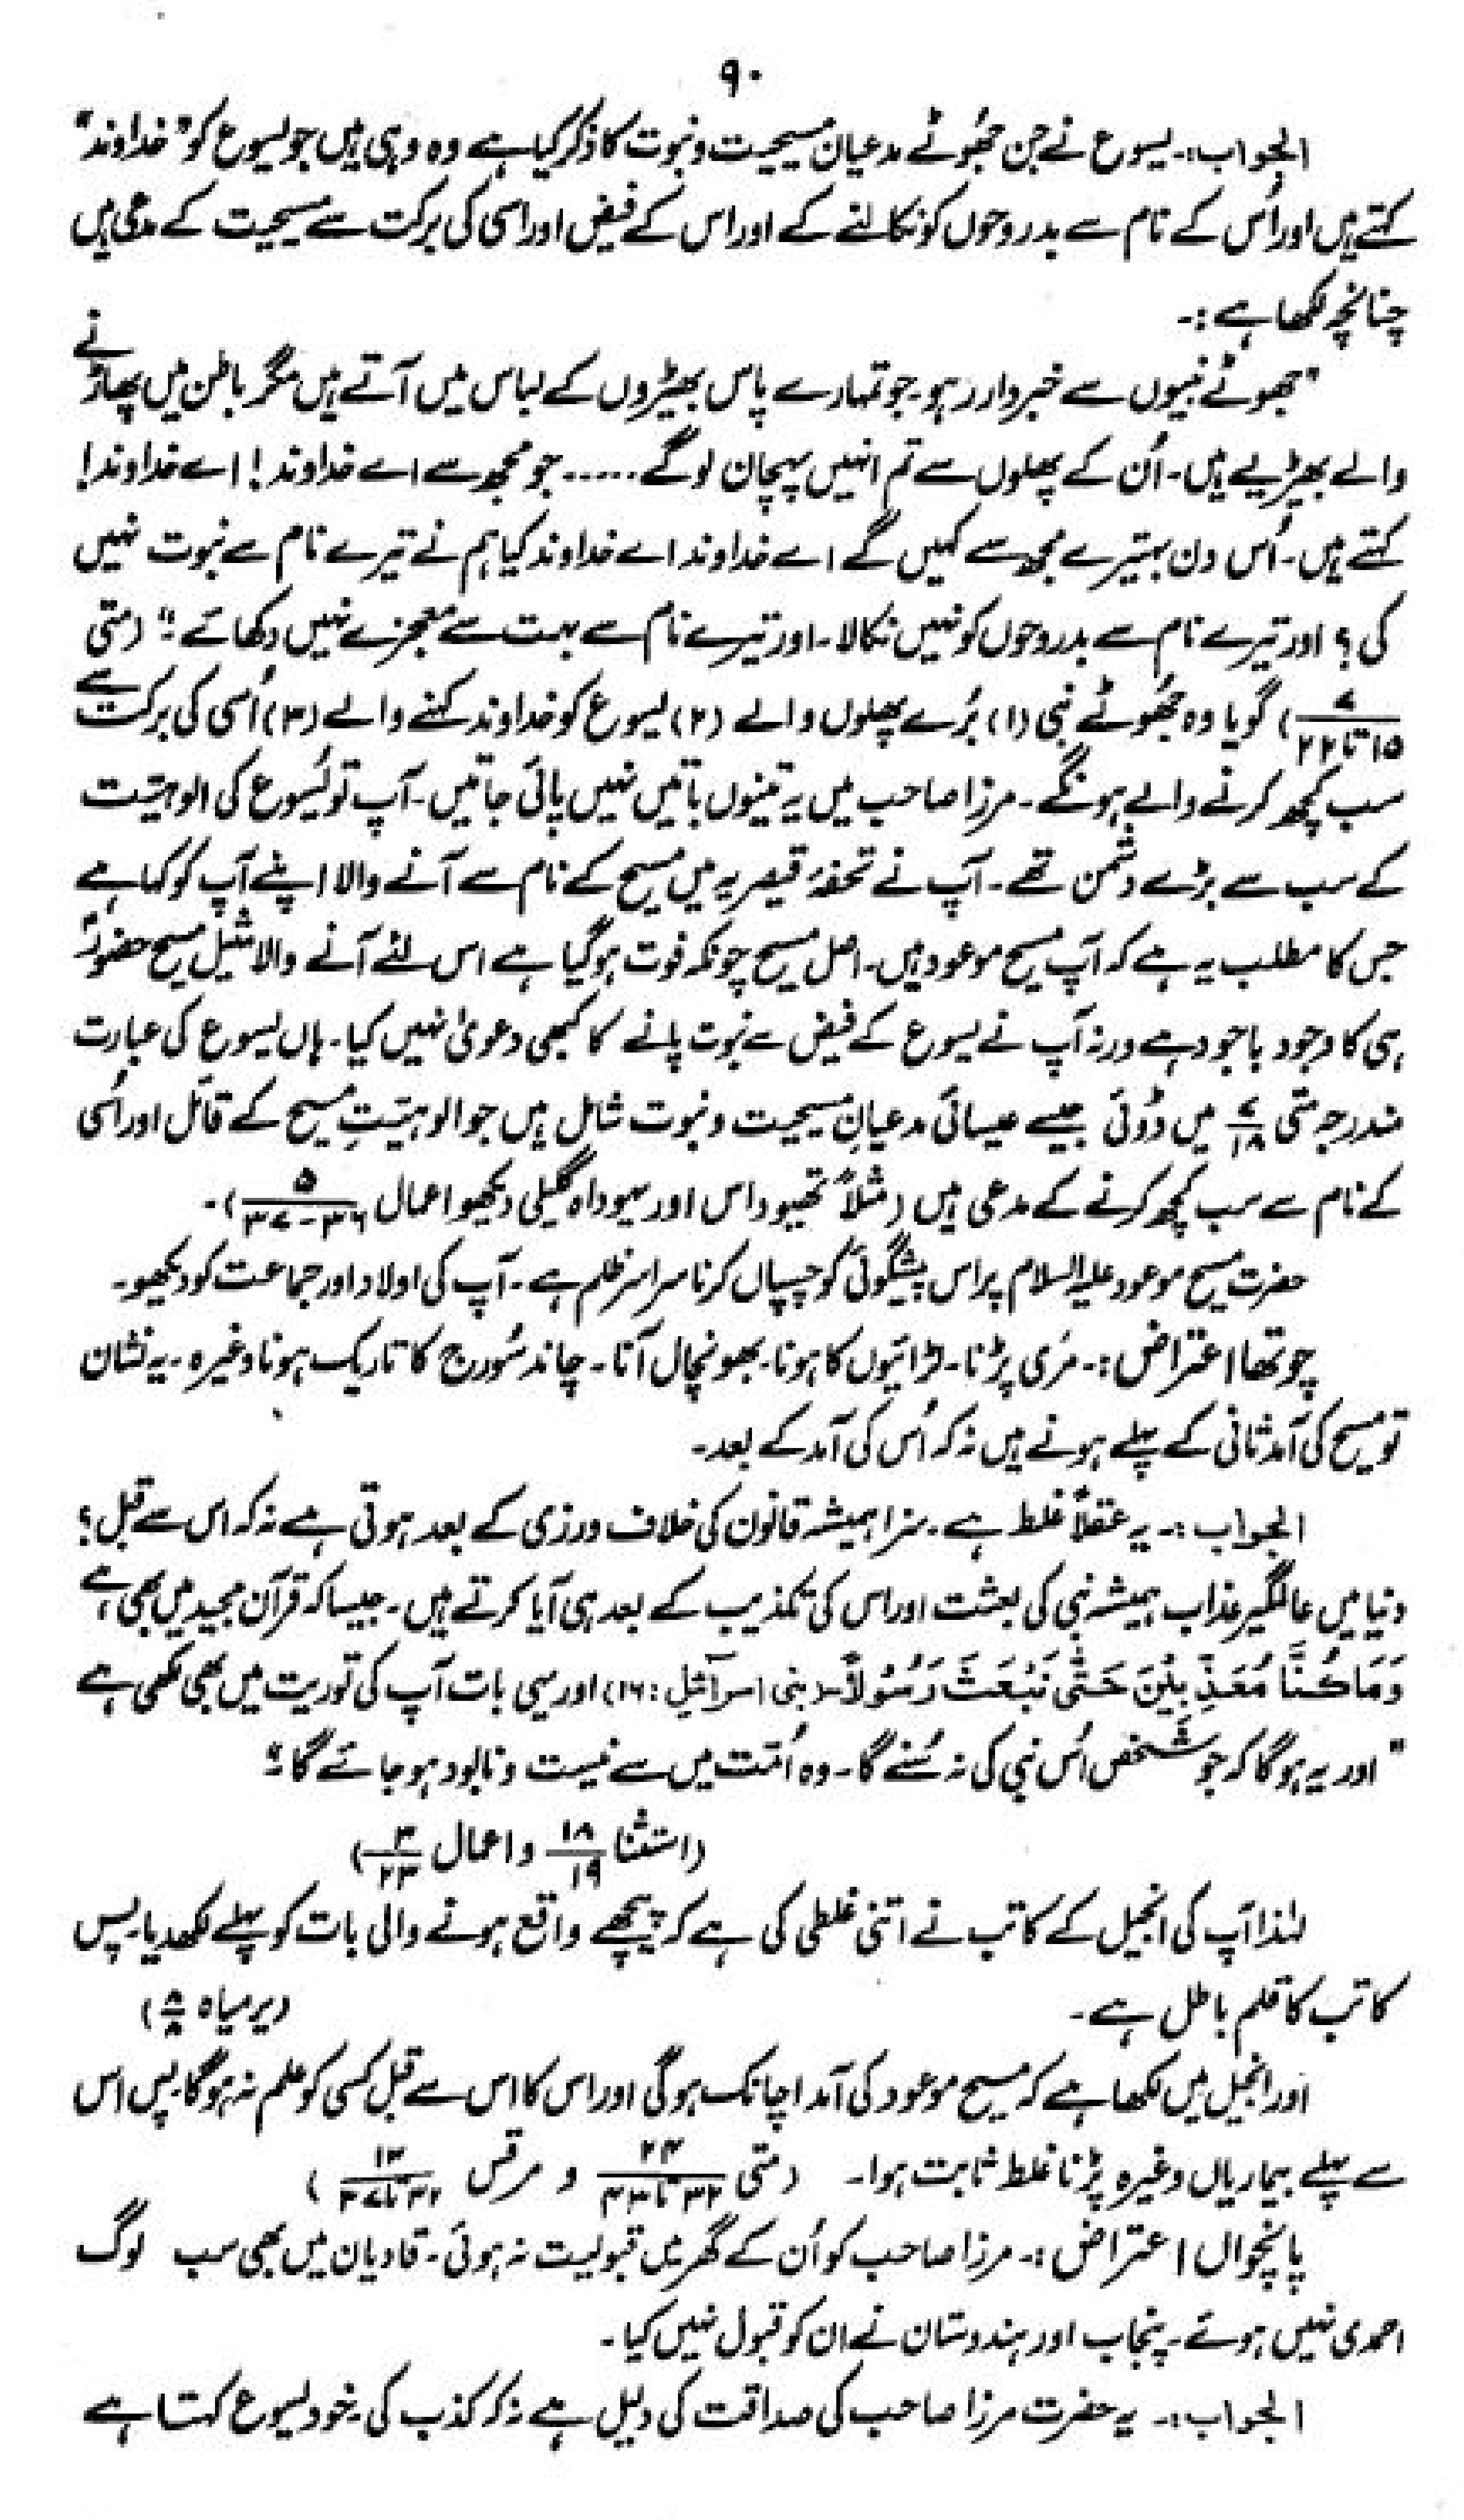 ۹۰
الجواب:۔ یسوع نے جن جھُوٹے مدعیان مسیحیت و نبوت کا ذکر کیا ہے وہ وہی ہیں جو یسوع کو "خداوند"
کہتے ہیں اور اُس کے نام سے بدروحوں کو نکالنے کے اور اس کے فیض اور اسی کی برکت سے مسیحیت کے مدعی ہیں
چنانچہ لکھا ہے:۔
"جھوٹے نبیوں سے خبردار رہو۔ جو تمہارے پاس بھیڑوں کے لباس میں آتے ہیں مگر باطن میں پھاڑنے
والے بھیڑیے ہیں۔ اُن کے پھلوں سے تم انہیں پہچان لوگے ..... جو مجھ سے اے خداوند! اے خداوند!
کہتے ہیں۔ اُس دن بہتیرے مجھ سے کہیں گے اے خداوند اے خداوند کیا ہم نے تیرے نام سے نبوت نہیں
کی؟ اور تیرے نام سے بدروحوں کو نہیں نکالا۔ اور تیرے نام سے بہت سے معجزے نہیں دکھائے۔" (متی
۷/۱۵ تا ۲۲) گویا وہ جھُوٹے نبی (۱) بُرے پھلوں والے (۲) یسوع کو خداوند کہنے والے (۳) اُسی کی برکت سے
سب کچھ کرنے والے ہونگے۔ مرزا صاحب میں یہ تینوں باتیں نہیں پائی جاتیں۔ آپ تو یُسوع کی الوہیّت
کے سب سے بڑے دشمن تھے۔ آپ نے تحفۂ قیصریہ میں مسیح کے نام سے آنے والا اپنے آپ کو کہا ہے
جس کا مطلب یہ ہے کہ آپ مسیح موعود ہیں۔ اصل مسیح چونکہ فوت ہوگیا ہے اس لئے آنے والا مثیل مسیح حضورؑ
ہی کا وجود باجود ہے ورنہ آپ نے یسوع کے فیض سے نبوت پانے کا کبھی دعویٰ نہیں کیا۔ ہاں یسوع کی عبارت
مندرجہ متی ۷/۱۸ میں ڈوئی جیسے عیسائی مدعیانِ مسیحیت و نبوت شامل ہیں جو الوہیّتِ مسیح کے قائل اور اُسی
کے نام سے سب کچھ کرنے کے مدعی ہیں (مثلاً تھیوداس اور یہوداہ گلیلی دیکھو اعمال ۵/۳۶-۳۷)۔
حضرت مسیح موعود علیہ السلام پر اس پیشگوئی کو چسپاں کرنا سراسر ظلم ہے۔ آپ کی اولاد اور جماعت کو دیکھو۔
چوتھا اعتراض:۔ مری پڑنا۔ لڑائیوں کا ہونا۔ بھونچال آنا۔ چاند سُورج کا تاریک ہونا وغیرہ۔ یہ نشان
تو مسیح کی آمد ثانی کے پہلے ہونے ہیں نہ کہ اُس کی آمد کے بعد۔
الجواب:۔ یہ عقلاً غلط ہے۔ سزا ہمیشہ قانون کی خلاف ورزی کے بعد ہوتی ہے نہ کہ اس سے قبل؟
دنیا میں عالمگیر عذاب ہمیشہ نبی کی بعثت اور اس کی تکذیب کے بعد ہی آیا کرتے ہیں۔ جیسا کہ قرآن مجید میں بھی ہے
وَمَا كُنَّا مُعَذِّبِيْنَ حَتّٰى نَبْعَثَ رَسُوْلًا۔ (بنی اسرآئیل: ۱۶) اور یہی بات آپ کی توریت میں بھی لکھی ہے
"اور یہ ہوگا کہ جو شخص اُس نبی کی نہ سُنے گا۔ وہ اُمّت میں سے نیست و نابود ہو جائے گا۔"
(استثنا ۱۸/۱۹ و اعمال ۳/۲۳)
لہٰذا آپ کی انجیل کے کاتب نے اتنی غلطی کی ہے کہ پیچھے واقع ہونے والی بات کو پہلے لکھ دیا۔ پس
کاتب کا قلم باطل ہے۔ (یرمیاہ ۸/۸)
اور انجیل میں لکھا ہے کہ مسیح موعود کی آمد اچانک ہوگی اور اس کا اس سے قبل کسی کو علم نہ ہوگا۔ پس اس
سے پہلے بیماریاں وغیرہ پڑنا غلط ثابت ہوا۔ (متی ۲۴/۳۲ تا ۴۳ و مرقس ۱۳/۳۲ تا ۳۷)
پانچواں اعتراض:۔ مرزا صاحب کو اُن کے گھر میں قبولیت نہ ہوئی۔ قادیان میں بھی سب لوگ
احمدی نہیں ہوئے۔ پنجاب اور ہندوستان نے ان کو قبول نہیں کیا۔
الجواب:۔ یہ حضرت مرزا صاحب کی صداقت کی دلیل ہے نہ کہ کذب کی۔ خود یسوع کہتا ہے